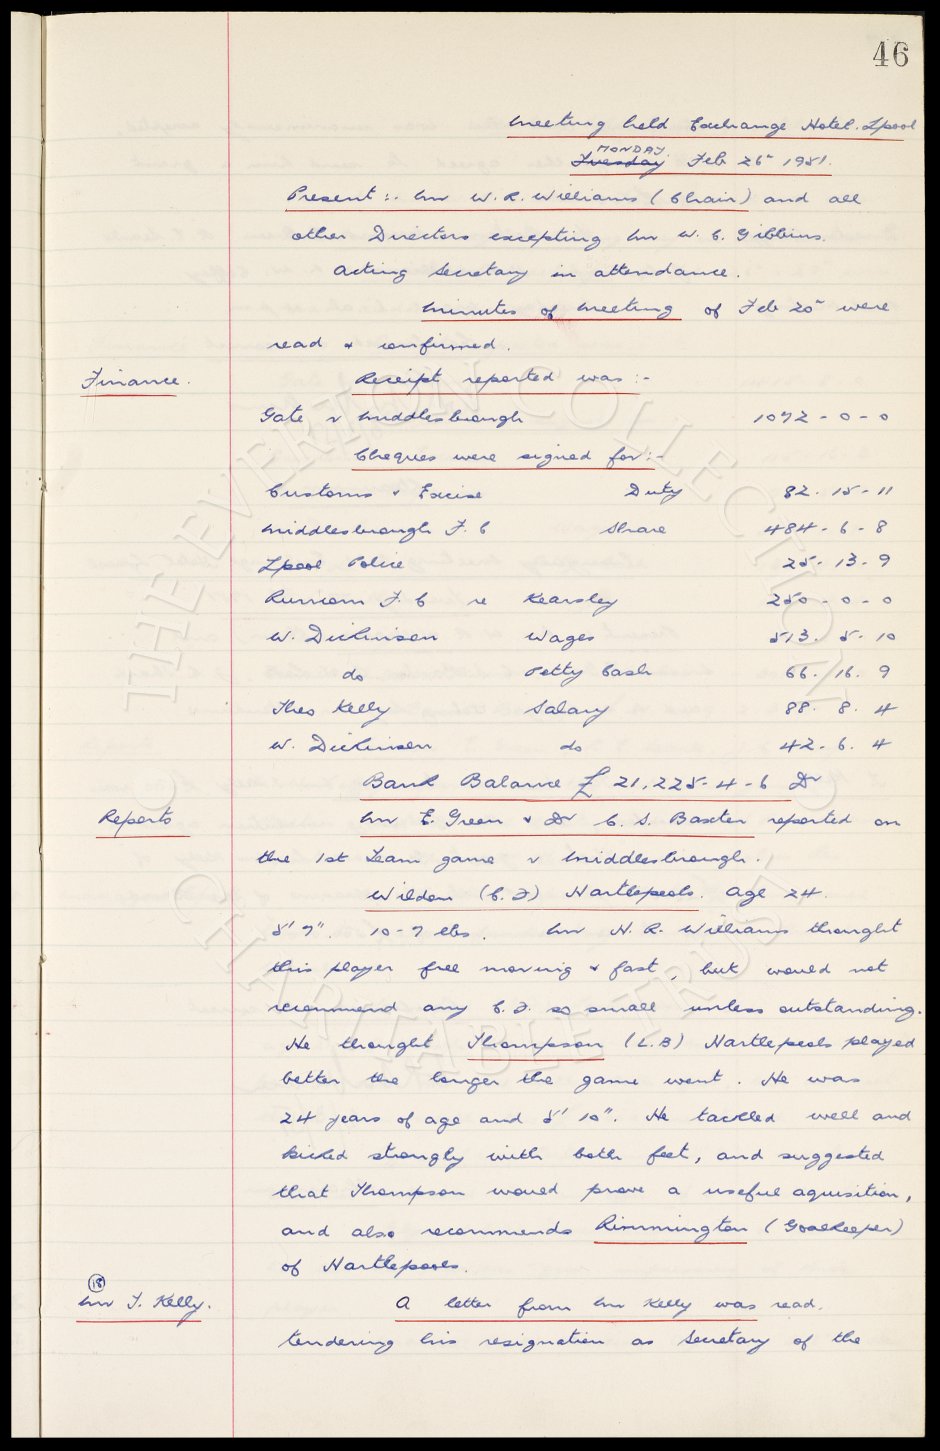 46
Meeting held Exchange Hotel. Lpool
MONDAY
Tuesday Feb 26th 1951.
Present:- Mr W. R. Williams (Chair) and all
other Directors excepting Mr W. C. Gibbins.
Acting Secretary in attendance.
Minutes of Meeting of Feb 20th were
read & confirmed.
Finance. Receipt reported was :-
Gate v Middlesbrough 1072 - 0 - 0
Cheques were signed for:-
Customs & Excise Duty 82. 15 - 11
Middlesbrough F. C Share 484 - 6 - 8
Lpool Police 25 - 13 - 9
Runcorn F. C re Kearsley 250 - 0 - 0
W. Dickinson Wages 513. 5. 10
do Petty Cash 66. 16. 9
Theo Kelly Salary 88. 8. 4
W. Dickinson do 42. 6. 4
Bank Balance £ 21,225-4-6 Dr
Reports Mr E. Green & Dr C. S. Baxter reported on
the 1st Team game v Middlesbrough.
Wildon (C.F) Hartlepools. Age 24
5' 7". 10-7 lbs. Mr N. R. Williams thought
this player free moving & fast, but would not
recommend any C.F. so small unless outstanding.
He thought Thompson (L.B) Hartlepools played
better the longer the game went. He was
24 years of age and 5' 10". He tackled well and
kicked strongly with both feet, and suggested
that Thompson would prove a useful aquisition,
and also recommends Rimmington (Goalkeeper)
of Hartlepools.
18
Mr T. Kelly. A letter from Mr Kelly was read,
tendering his resignation as Secretary of the
THE EVERTON COLLECTION
CHARITABLE TRUST